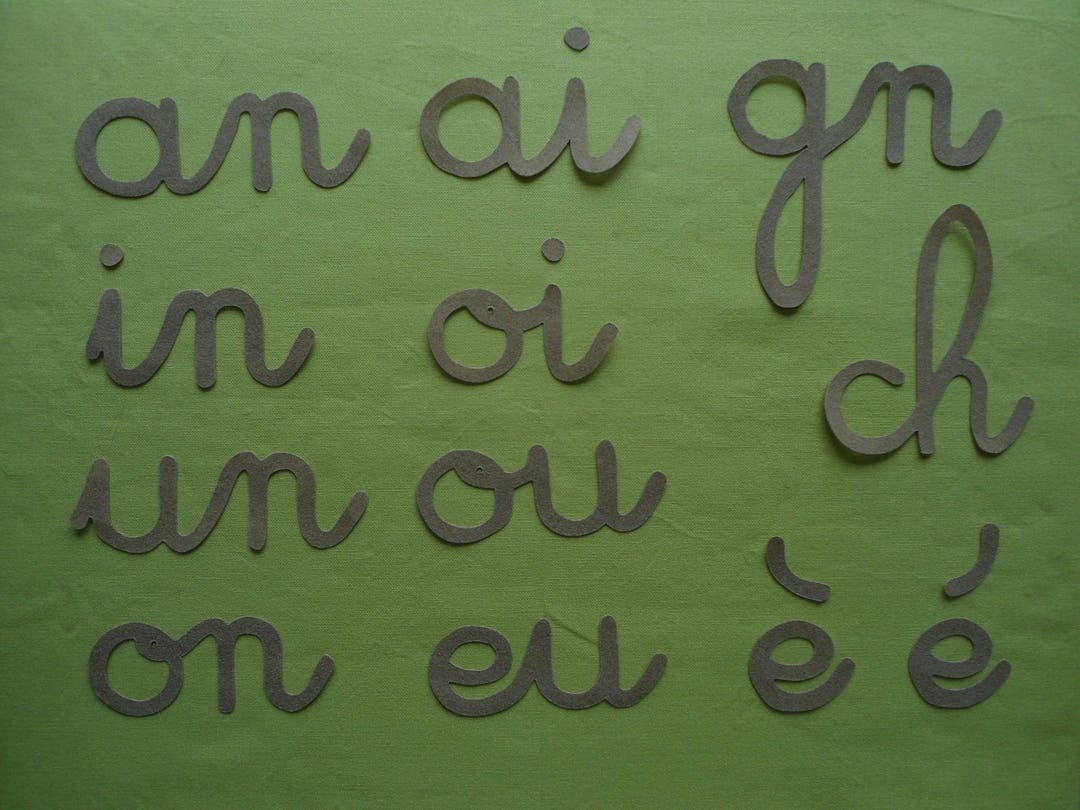 an ai gn
in oi ch
un ou
on eu è é